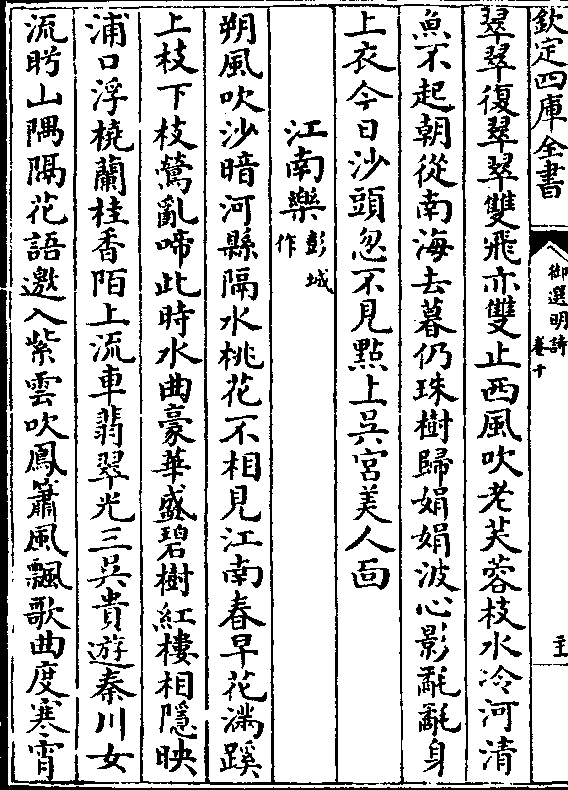 欽定四庫全書
御選明詩
卷十
翠翠復翠翠雙飛亦雙止西風吹老芙蓉枝水冷河清
魚不起朝從南海去暮仍珠樹歸娟娟波心影毿毿身
上衣今日沙頭忽不見㸃上吳宮美人面
江南樂彭城作
朔風吹沙暗河縣隔水桃花不相見江南春早花滿蹊
上枝下枝鶯亂啼此時水曲豪華盛碧樹紅樓相隱映
浦口浮橈蘭桂香陌上流車翡翠光三吳貴遊秦川女
流眄山隅隔花語邀入紫雲吹鳳簫風飄歌曲度寒宵